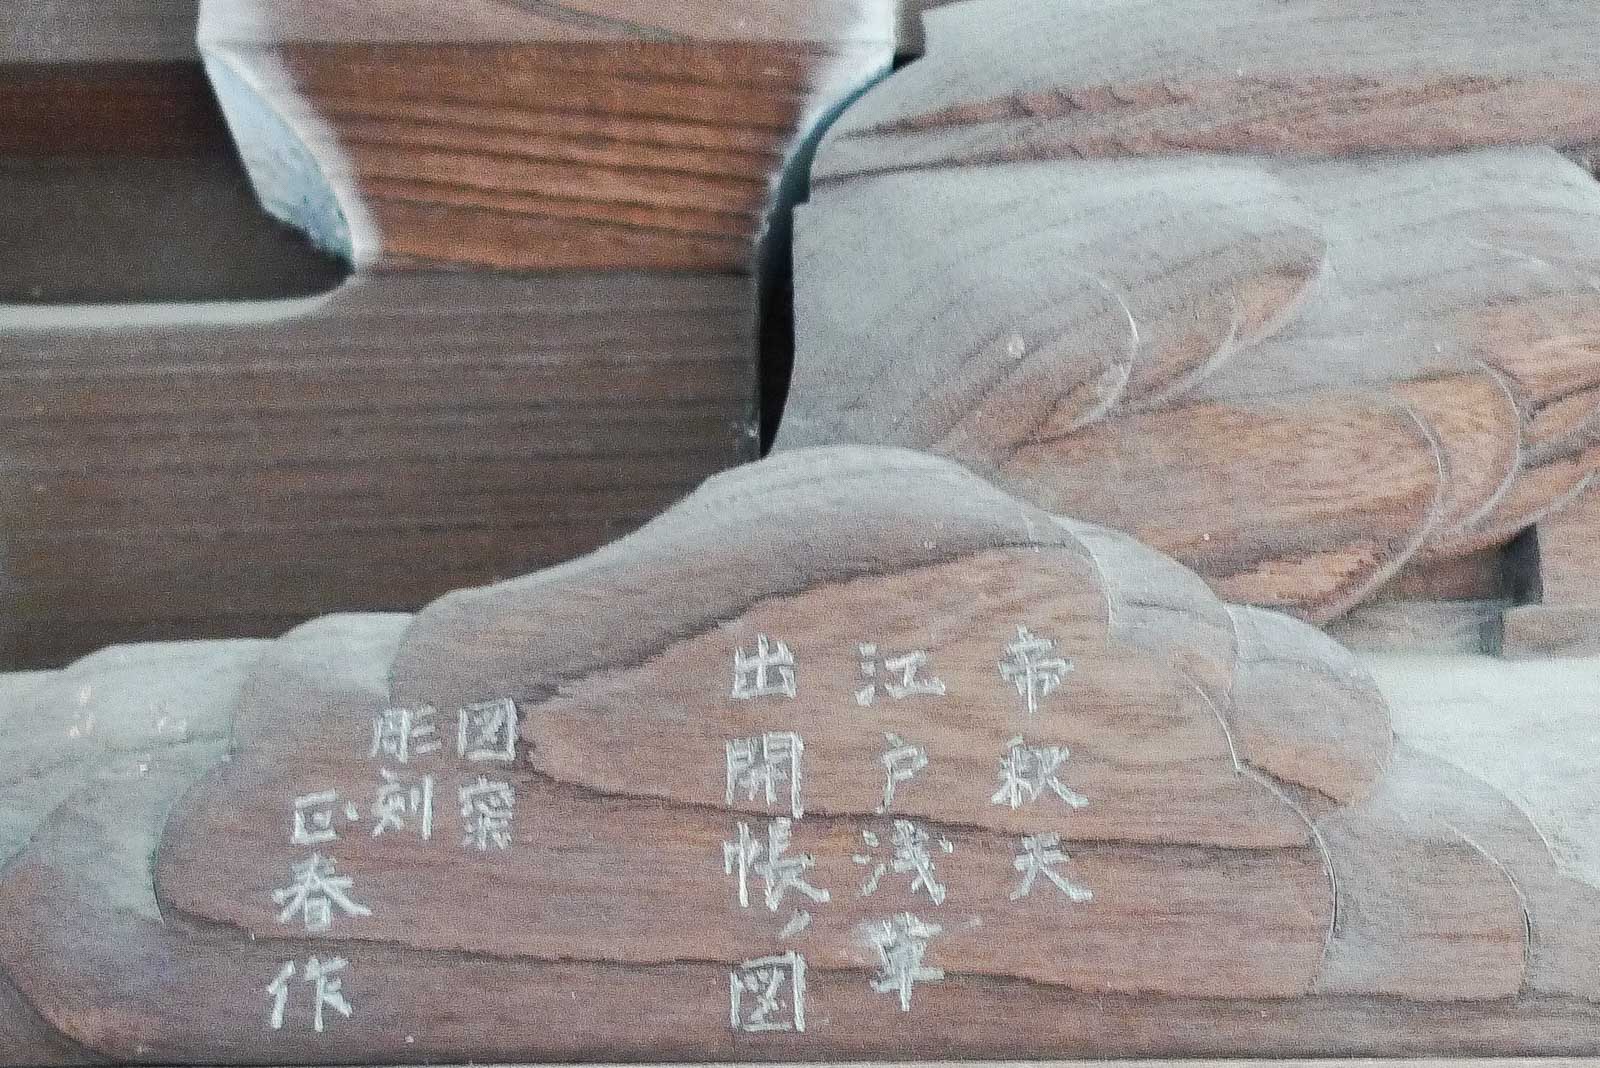 帝釈天
江戸浅草
出開帳ノ図
図案
彫刻
正春作